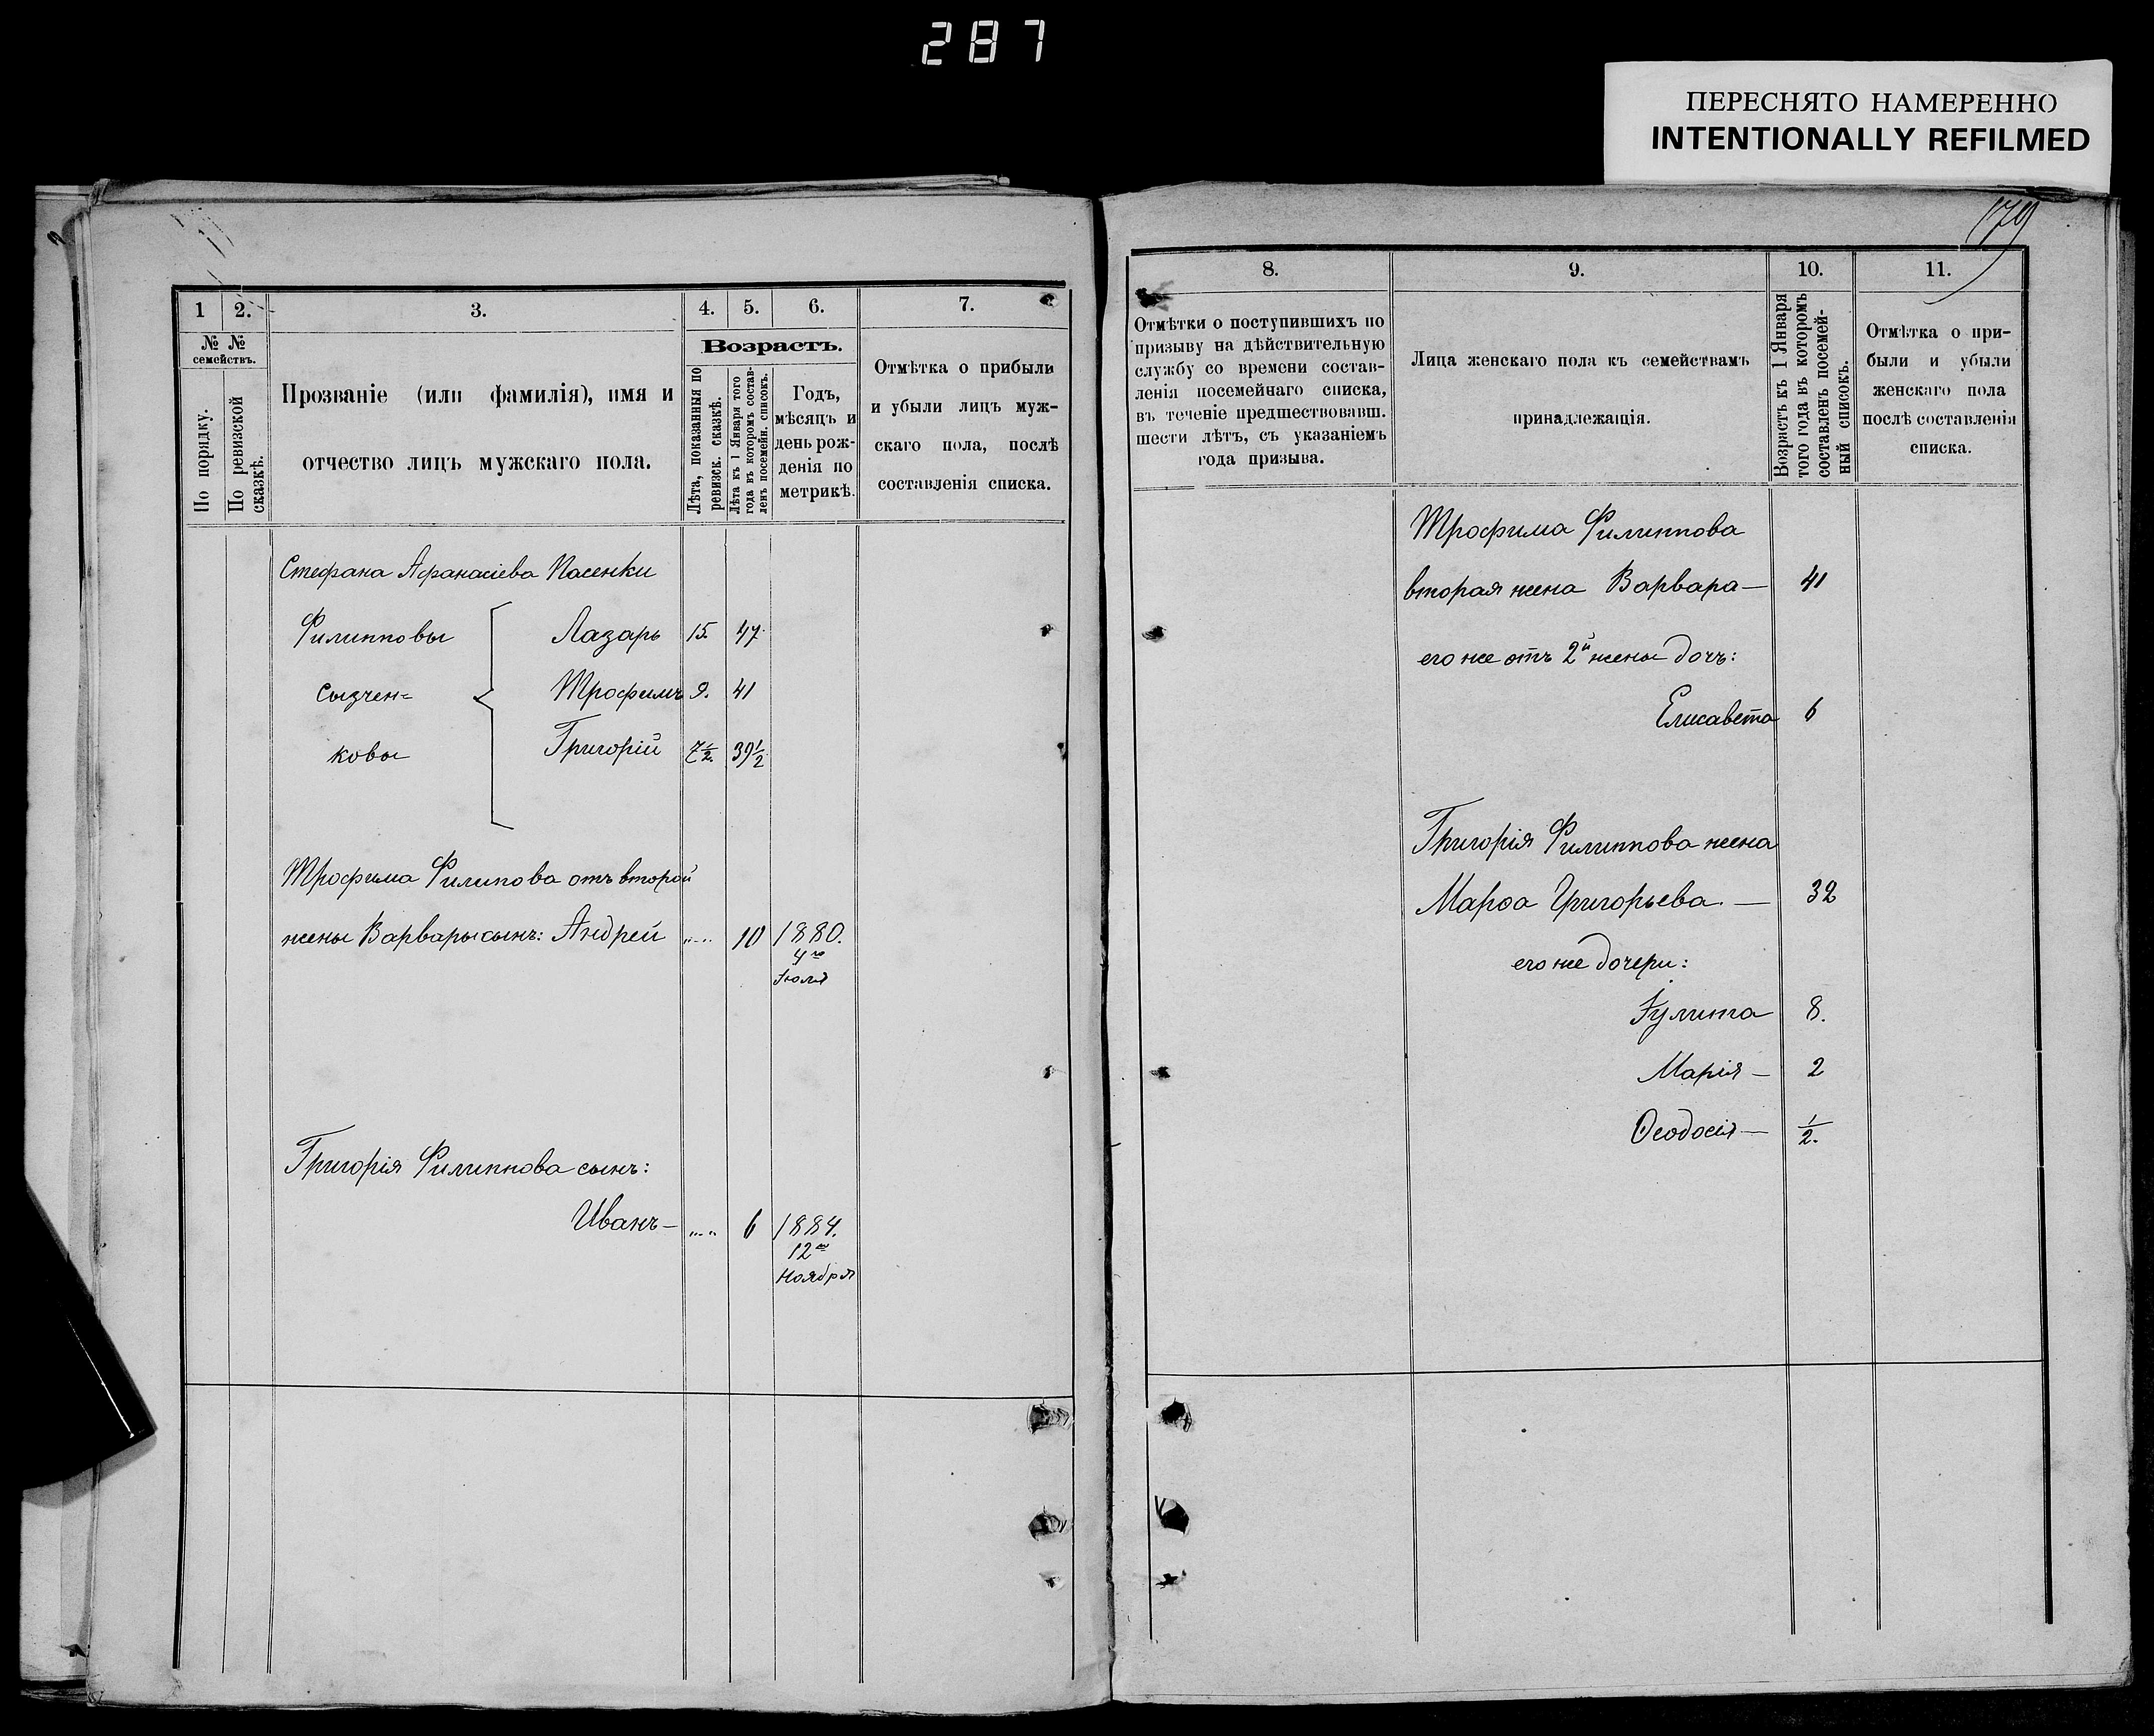 287
ПЕРЕСНЯТО НАМЕРЕННО
INTENTIONALLY REFILMED
179
1
2.
3.
4.
5.
6.
7.
№ №
семействъ.
По порядку.
По ревизской
сказкѣ.
Прозваніе (или фамилія), имя и
отчество лицъ мужскаго пола.
Возрастъ.
Лѣта, показанныя по
ревизск. сказкѣ.
Лѣта къ 1 Января того
года въ которомъ состав-
ленъ посемейн. списокъ.
Годъ,
мѣсяцъ и
день рож-
денія по
метрикѣ.
Отмѣтка о прибыли
и убыли лицъ муж-
скаго пола, послѣ
составленія списка.
Стефана Афанасіева Пасенки
Филипповы Лазарь 15. 47.
Сызчен= Трофимъ 9. 41
ковы Григорій 7½. 39½
Трофима Филипова отъ второй
жены Варвары сынъ: Андрей „…„ 10 1880.
4го
Іюля
Григорія Филиппова сынъ:
Иванъ — „…„ 6 1884.
12го
Ноября
8.
9.
10.
11.
Отмѣтки о поступившихъ по
призыву на дѣйствительную
службу со времени состав-
ленія посемейнаго списка,
въ теченіе предшествовавш.
шести лѣтъ, съ указаніемъ
года призыва.
Лица женскаго пола къ семействамъ
принадлежащія.
Возрастъ къ 1 Января
того года въ которомъ
составленъ посемей-
ный списокъ.
Отмѣтка о при-
были и убыли
женскаго пола
послѣ составленія
списка.
Трофима Филиппова
вторая жена Варвара — 41
его же отъ 2й жены дочь:
Елисавета 6
Григорія Филиппова жена
Марѳа Григорьева. — 32
его же дочери:
Іулита 8.
Марія — 2
Ѳеодосія — ½.